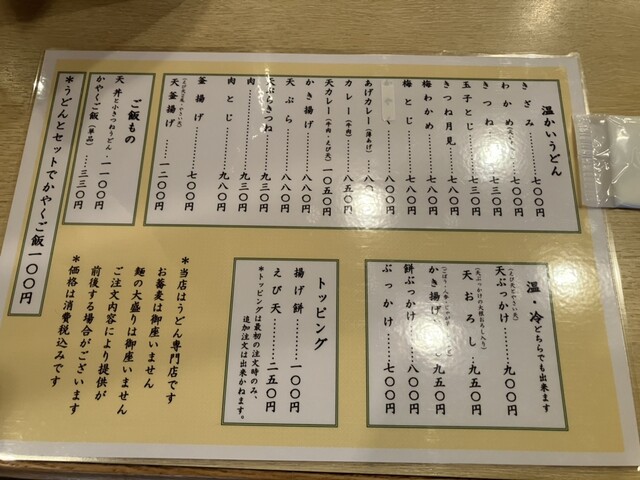 温かいうどん
きざみ……七〇〇円
わかめ……七〇〇円
きつね……七三〇円
玉子とじ……七三〇円
きつね月見……七八〇円
梅わかめ……七八〇円
梅とじ……七八〇円
……八〇〇円
あげカレー(薄あげ)……八〇〇円
カレー(牛肉)……八五〇円
天カレー(牛肉・えび天)一〇五〇円
かき揚げ……八八〇円
天ぷら……八八〇円
天ぷらきつね……九三〇円
肉……九三〇円
肉とじ……九八〇円
釜揚げ……七〇〇円
天釜揚げ……一二〇〇円
ご飯もの
天丼と小きつねうどん・一一〇〇円
かやくご飯(単品)……三三〇円
*うどんとセットでかやくご飯一〇〇円
温・冷どちらでも出来ます
天ぶっかけ……九〇〇円
(えび天とやさい天)
天おろし……九五〇円
(天ぶっかけの大根おろし入り)
かき揚げ……九五〇円
餅ぶっかけ……八〇〇円
ぶっかけ……七〇〇円
トッピング
揚げ餅……一〇〇円
えび天……二五〇円
*トッピングは最初の注文時のみ、
追加注文は出来かねます。
*当店はうどん専門店です
お蕎麦は御座いません
麺の大盛りは御座いません
ご注文内容により提供が
前後する場合がございます
*価格は消費税込みです